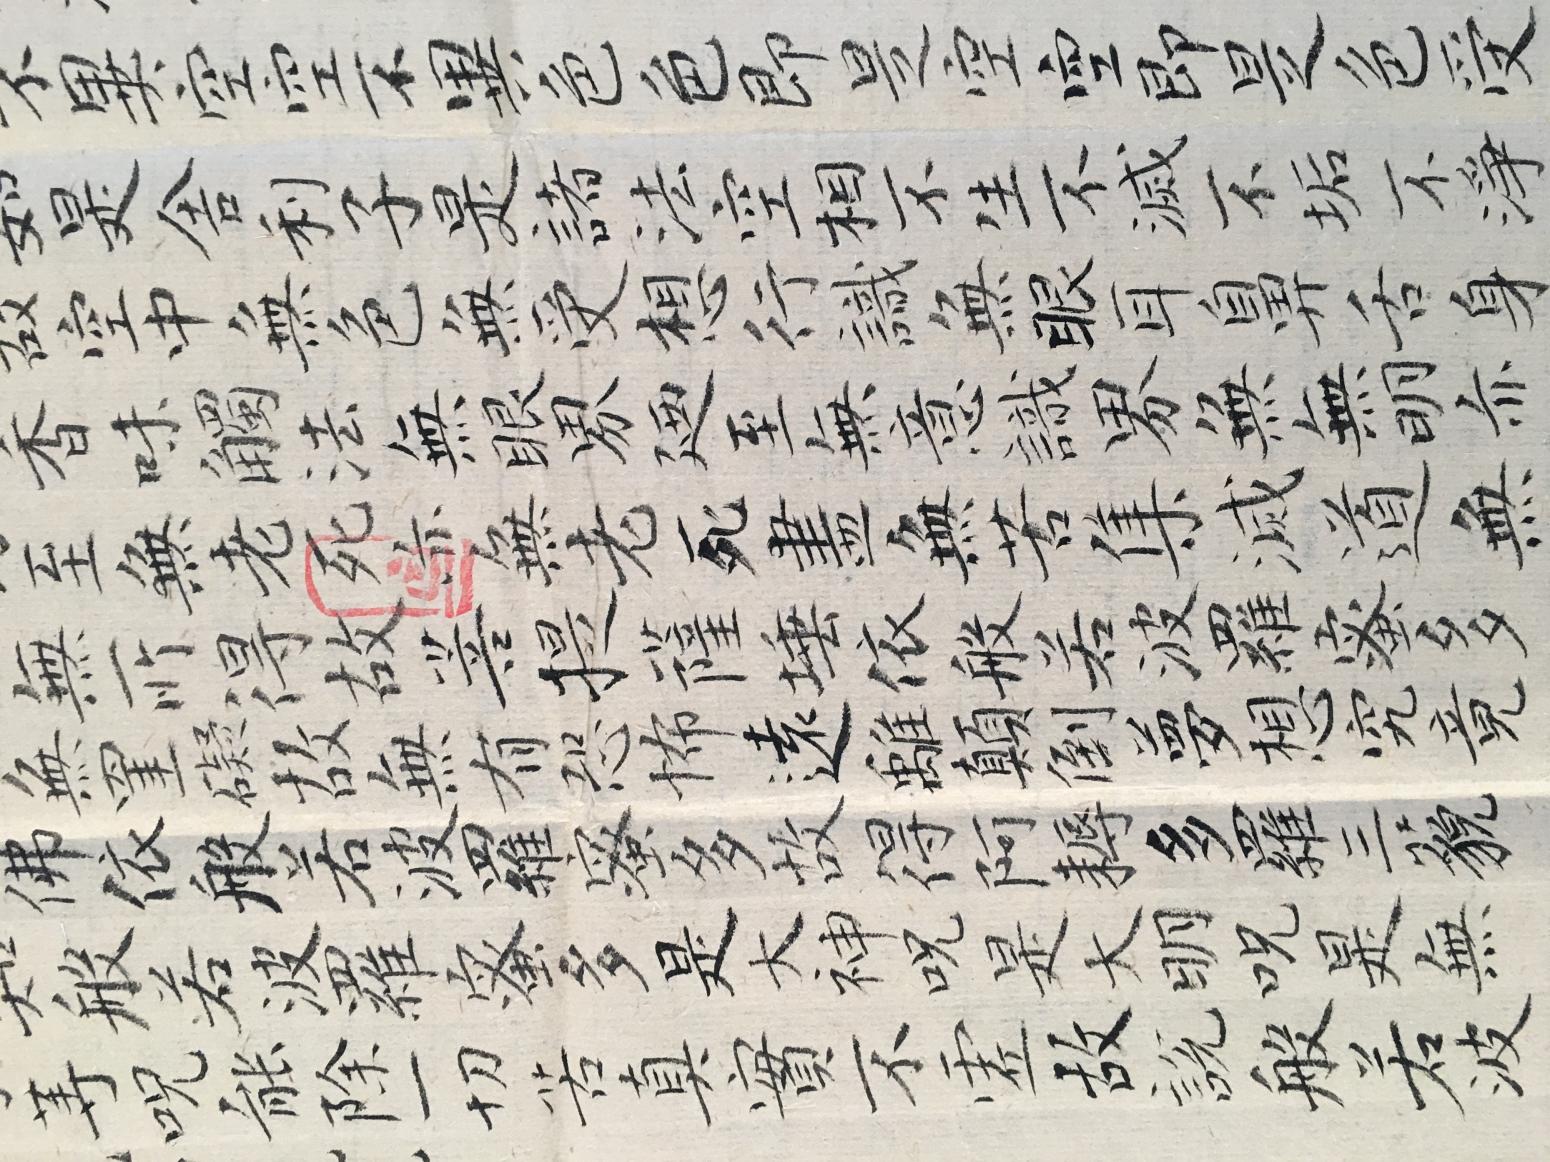 不異空空不異色色即是空空即是色受
如是舍利子是諸法空相不生不滅不垢不淨
故空中無色無受想行識無眼耳鼻舌身
香味觸法無眼界廼至無意識界無無明亦
至無老死亦無老死盡無苦集滅道無
無所得故菩提薩埵依般若波羅蜜多
無罣礙故無有恐怖遠離顛倒夢想究竟
佛依般若波羅蜜多故得阿耨多羅三藐
知般若波羅蜜多是大神呪是大明呪是無
等呪能除一切苦真實不虛故說般若波